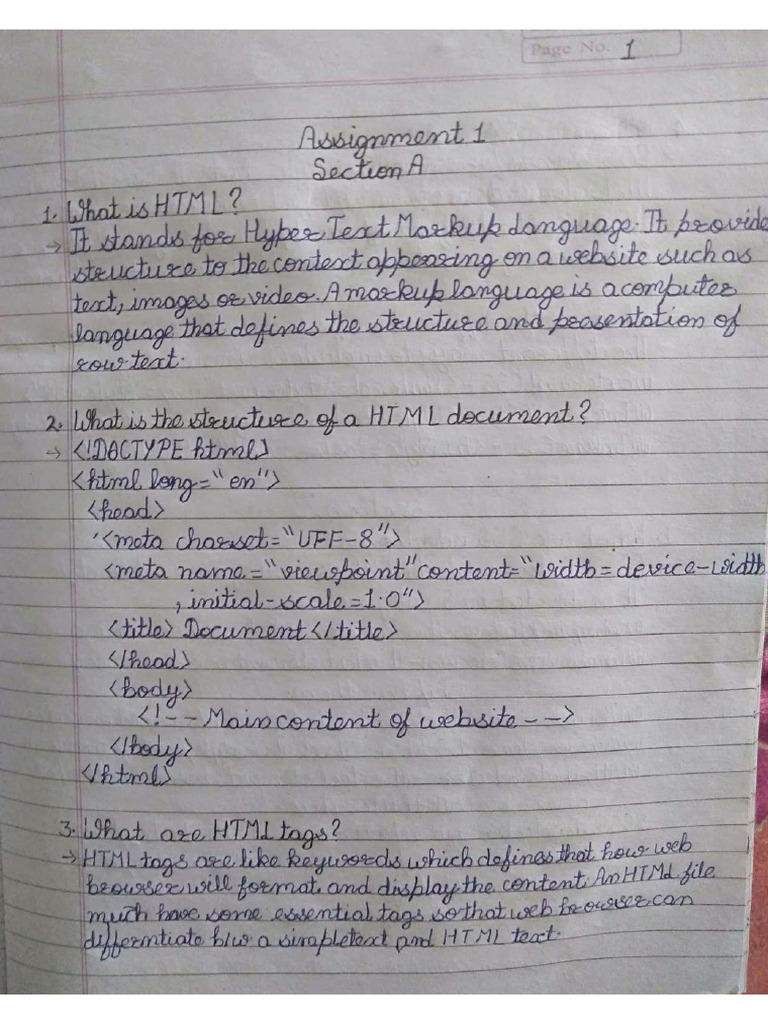 Page No. 1
Assignment 1
Section A
1. What is HTML?
→ It stands for Hyper Text Markup Language. It provide
structure to the context appearing on a website such as
text, images or video. A markup language is a computer
language that defines the structure and presentation of
raw text.
2. What is the structure of a HTML document?
→ <!DOCTYPE html>
<html lang="en">
<head>
<meta charset="UFF-8">
<meta name="viewpoint" content="width=device-width
, initial-scale=1.0">
<title> Document </title>
</head>
<body>
<!-- Main content of website -->
</body>
</html>
3. What are HTML tags?
→ HTML tags are like keywords which defines that how web
browser will format and display the content. An HTML file
much have some essential tags so that web browser can
differntiate b/w a simple text and HTML text.